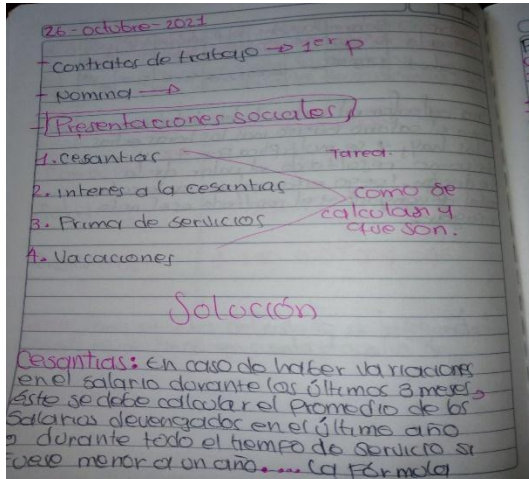 26-octubre-2021
- Contratos de trabajo → 1er p
- Nomina →
- Presentaciones sociales
1. cesantias
Tarea.
2. interes a la cesantias
como se
3. Prima de servicios
calculan y
que son.
4. Vacaciones
Solución
Cesantias: En caso de haber variaciones
en el salario durante los últimos 3 meses,
éste se debe calcular el promedio de los
Salarios devengados en el último año
o durante todo el tiempo de servicio si
fuese menor a un año..... la fórmula